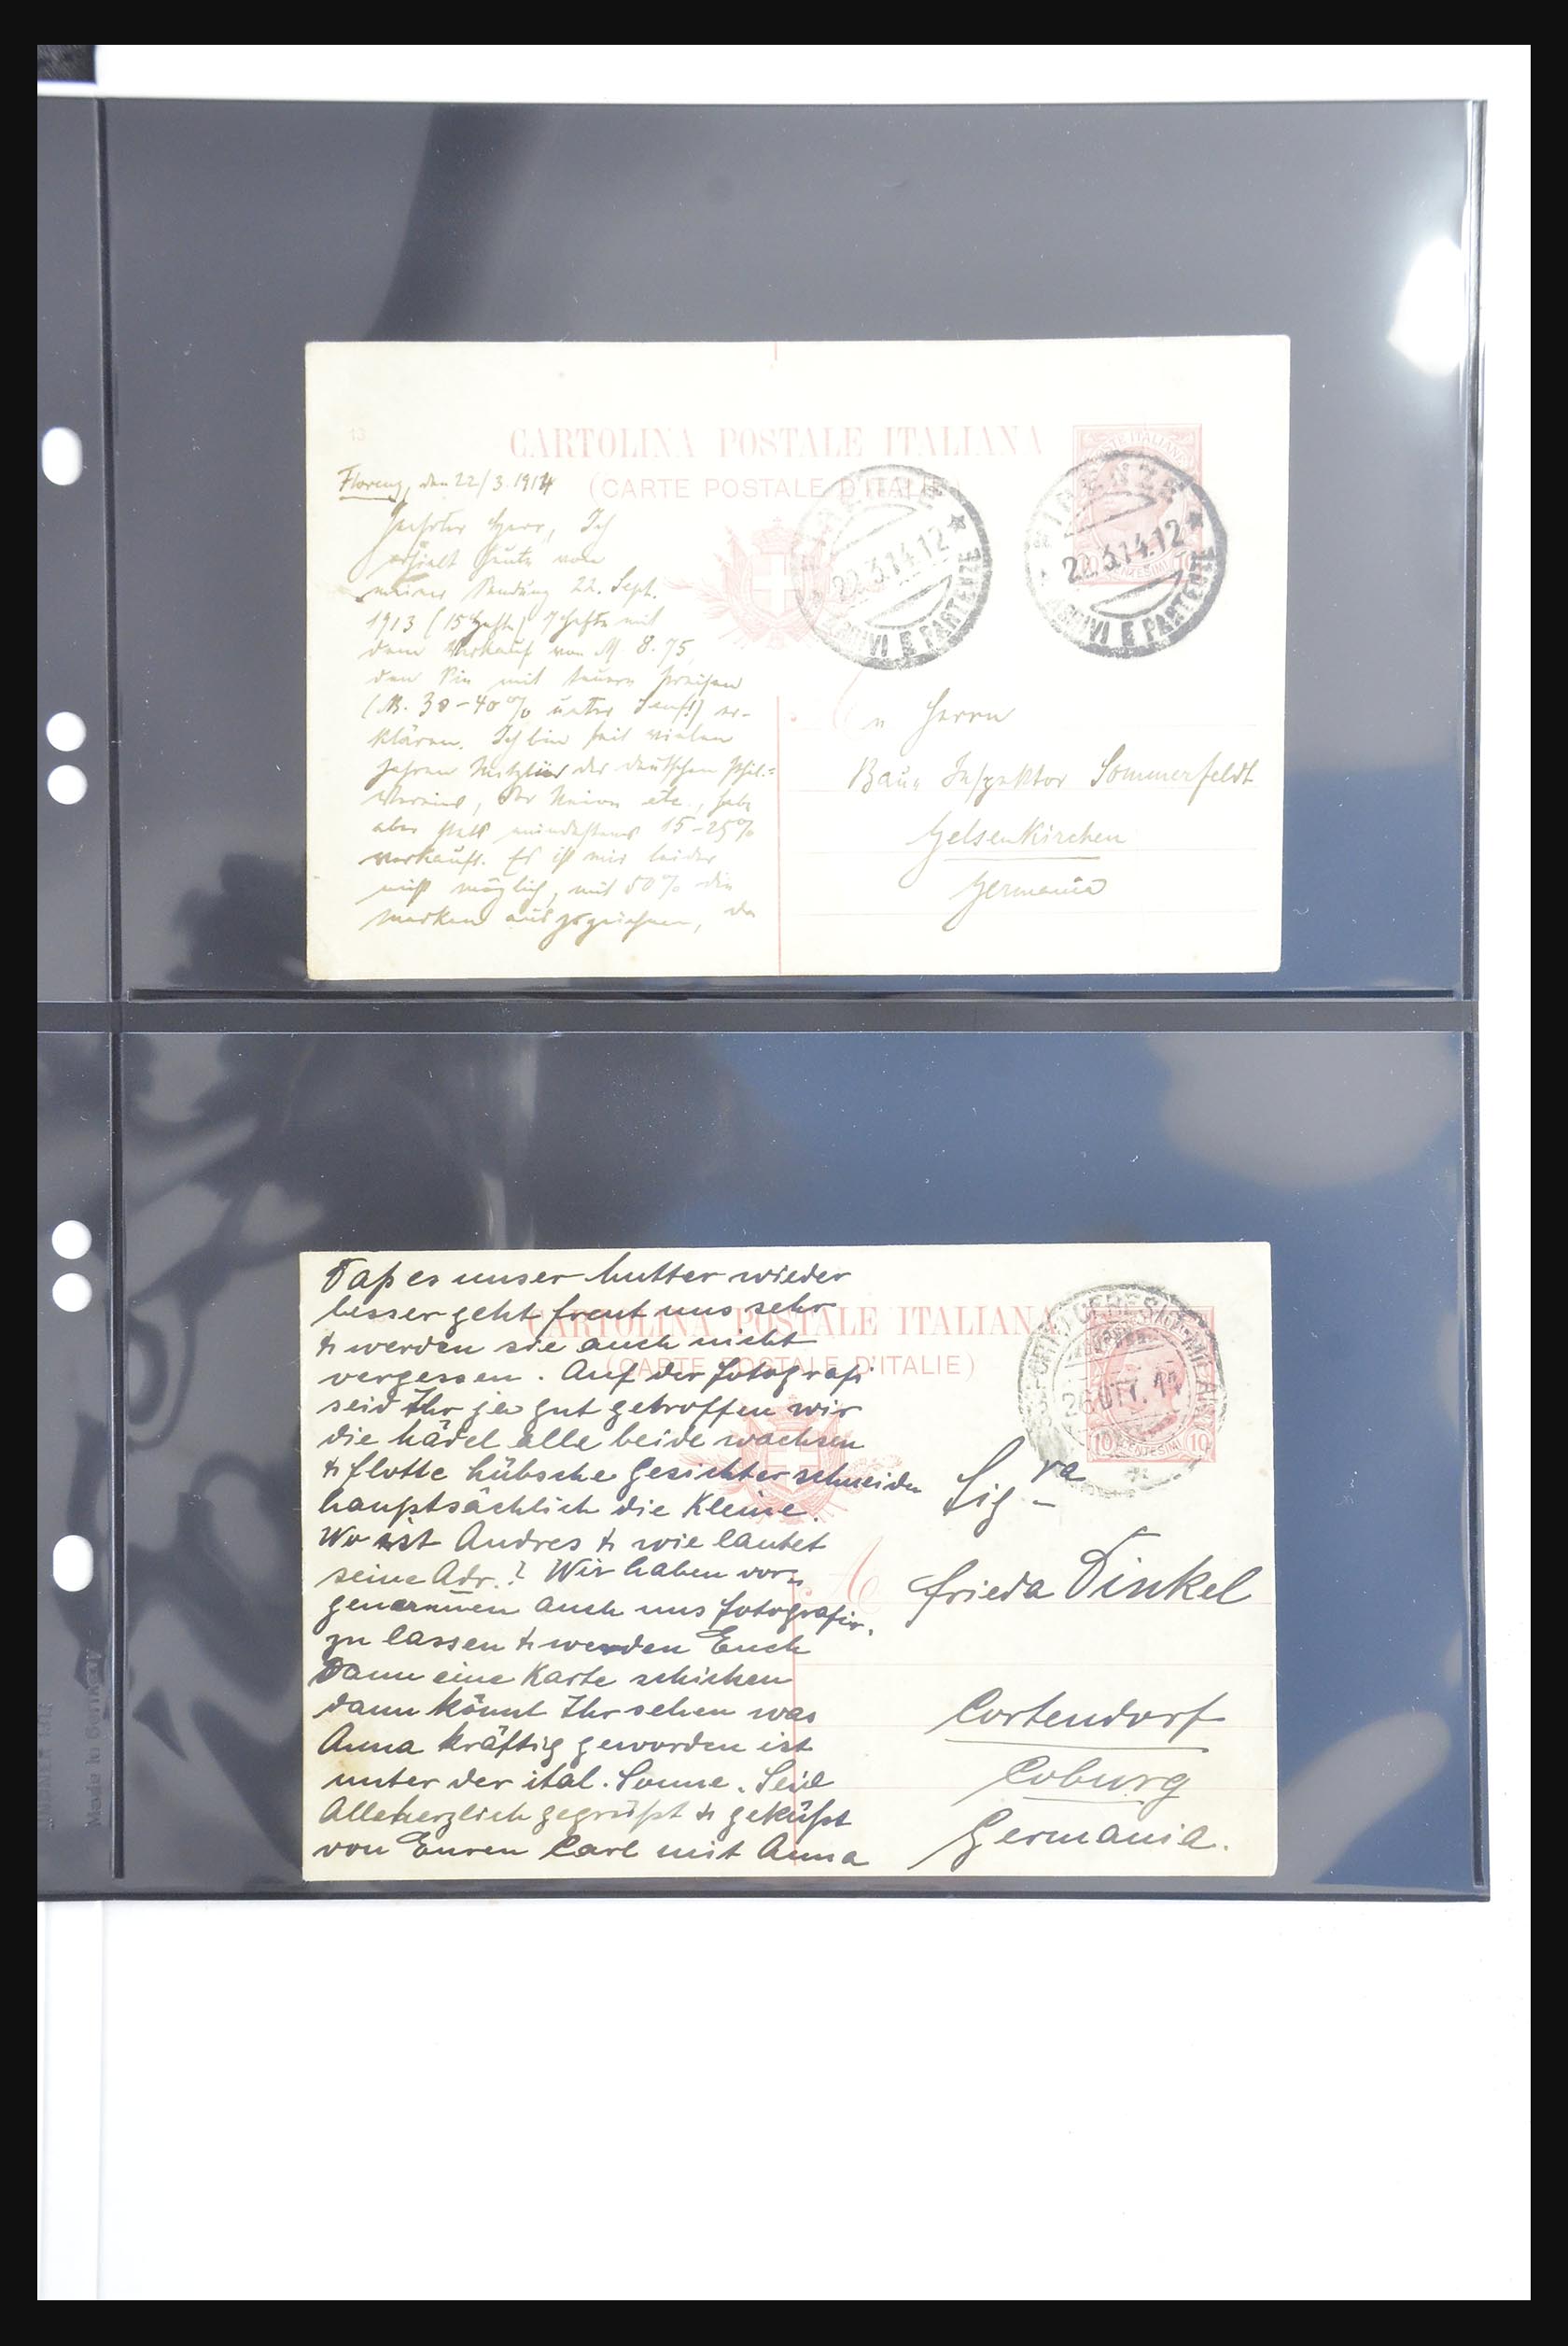 CARTOLINA POSTALE ITALIANA
(CARTE POSTALE D'ITALIE)
Florenz, den 22/3.1914
Geehrter Herr, Ich
erhielt heute von
meiner Sendung 22. Sept.
1913 (15 Hefte) 7 Hefte mit
dem Verkauf von M 8.75,
den Sie mit teuern Preisen
(M. 30-40% unter Senf!) er-
klären. Ich bin seit vielen
Jahren Mitglied der deutschen Phil.=
Vereine, der Union etc., habe
aber stets mindestens 15-25%
verkauft. Es ist mir leider
nicht möglich, mit 50% die
Marken auszuzeichnen, da
FIRENZE
22.3.14.12
ARRIVI E PARTENZE
FIRENZE
22.3.14.12
ARRIVI E PARTENZE
An Herrn
Bau-Inspektor Sommerfeldt
Gelsenkirchen
Germania
CARTOLINA POSTALE ITALIANA
(CARTE POSTALE D'ITALIE)
Daß es unser Mutter wieder
besser geht freut uns sehr
& werden sie auch nicht
vergessen. Auf der Fotografi
seid Ihr ja gut getroffen wir
die Mädel alle beide wachsen
& flotte hübsche Gesichter schneiden
hauptsächlich die Kleine.
Wo ist Andres & wie lautet
seine Adr.? Wir haben vor
genommen auch uns fotografir.
zu lassen & werden Euch
Dann eine Karte schicken
dann könnt Ihr sehen was
Anna kräftig geworden ist
unter der ital. Sonne. Seid
Alle herzlich gegrüßt & geküßt
von Euren Carl mit Anna
PORTO CERESIO
26 OTT. 14
10 CENTESIMI 10
Sig.ra
Frieda Dinkel
Cortendorf
Coburg
Germania.
Made in Germany